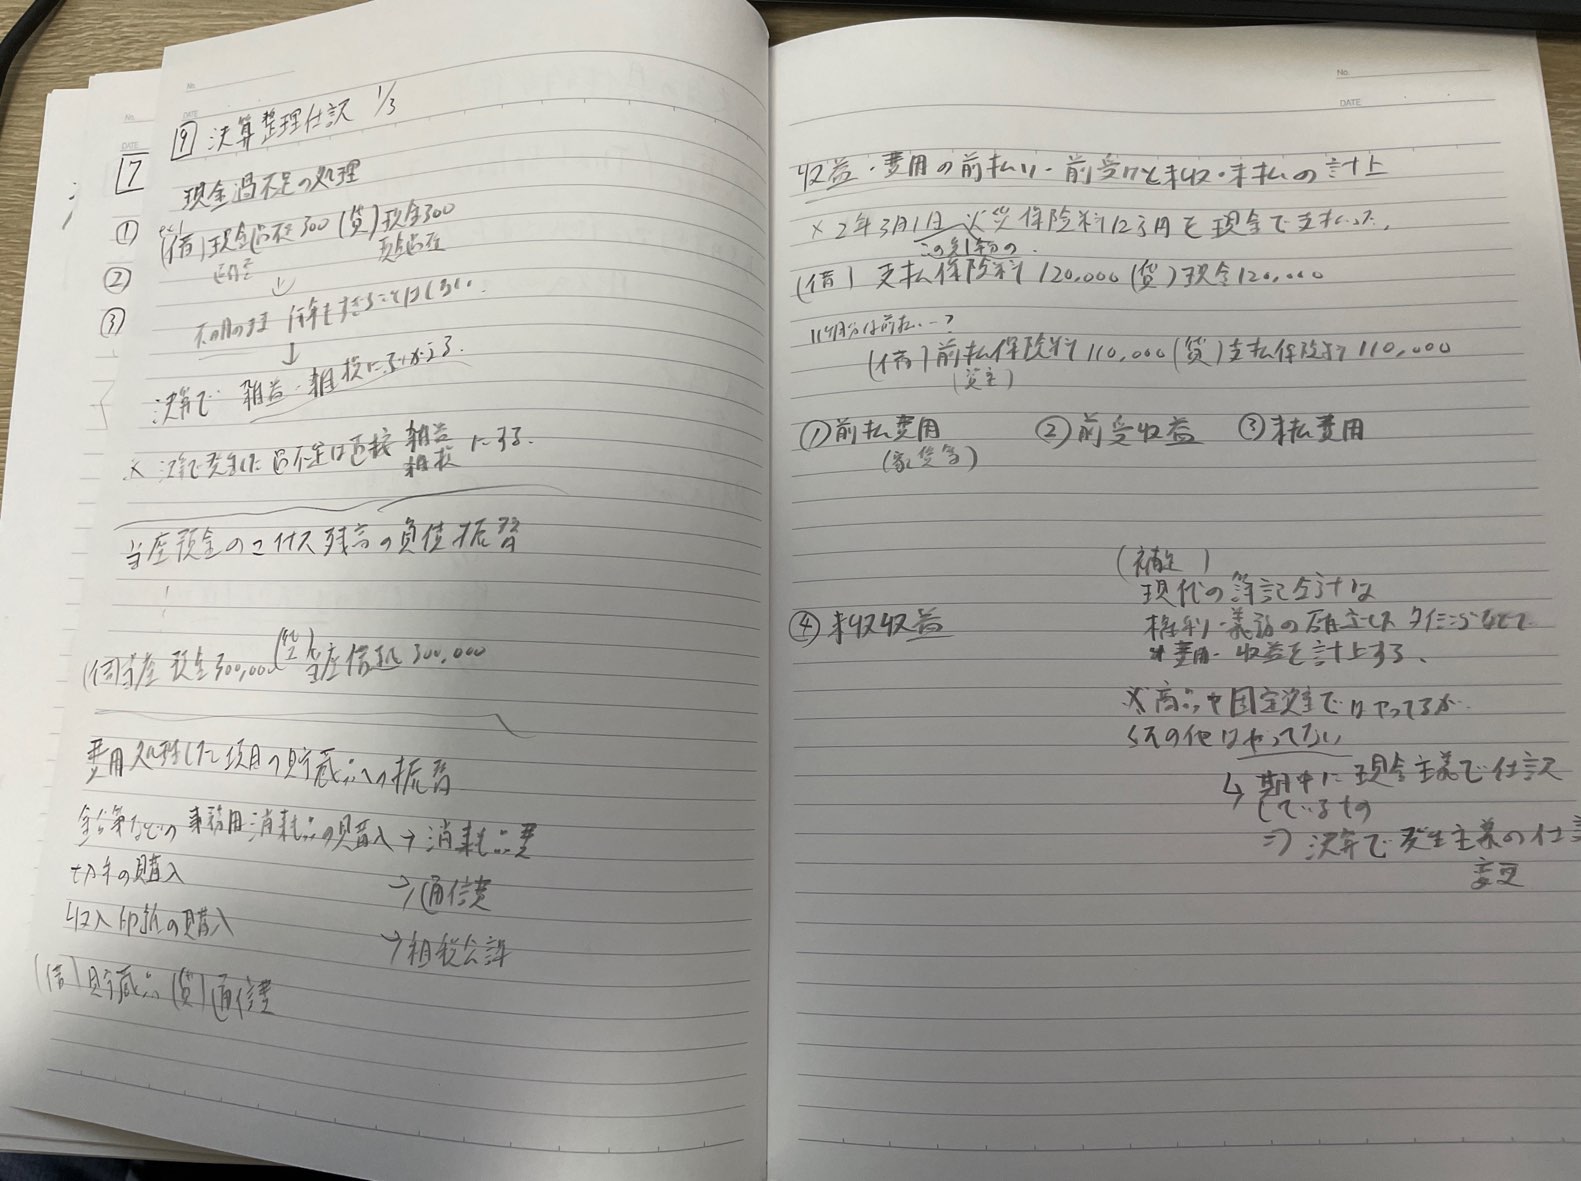 7
①
②
③
No.
DATE
9 決算整理仕訳 1/3
現金過不足の処理
(借)現金過不足300 (貸)現金300
↓
↓
決算で 雑益・雑損にふりかえる.
※ 決算で発生した過不足は直接 雑益 雑損 にする.
当座預金のマイナス残高の負債振替
(借)当座預金300,000 (貸)当座借越 300,000
費用処理した項目の貯蔵品への振替
などの事務用消耗品の購入 → 消耗品費
切手の購入 → 通信費
収入印紙の購入 → 租税公課
(借)貯蔵品 (貸)通信費
No.
DATE
収益・費用の前払い・前受けと未収・未払の計上
×2年3月1日 火災保険料12ヶ月を現金で支払った.
(借) 支払保険料 120,000 (貸)現金120,000
11ヶ月分は前払
(借)前払保険料 110,000 (貸)支払保険料 110,000
(資産)
①前払費用 ②前受収益 ③未払費用
④未収収益
(補足)
現代の簿記会計は
権利・義務の確定した タイミング
費用・収益を計上する.
※商品や固定資産ではやってるが
その他はやってない
↳ 期中に現金主義で仕訳
しているもの
⇒ 決算で発生主義の仕訳
変更